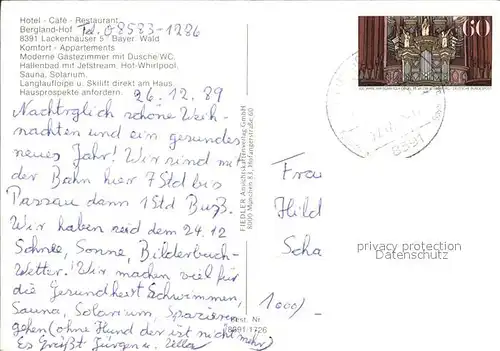 Hotel - Café - Restaurant
Bergland-Hof Tel. 08583-1286
8391 Lackenhäuser 5 Bayer. Wald
Komfort - Appartements
Moderne Gästezimmer mit Dusche/WC.
Hallenbad mit Jetstream. Hot-Whirlpool,
Sauna, Solarium,
Langlaufloipe u. Skilift direkt am Haus.
Hausprospekte anfordern.
26.12.89
Nachtrglich schöne Weih-
nachten und ein gesundes
neues Jahr! Wir sind mit
der Bahn hier 7 Std bis
Passau dann 1 Std Buß.
Wir haben seid dem 24.12
Schnee, Sonne, Bilderbuch-
Wetter! Wir machen viel für
die Gesundheit Schwimmen,
Sauna, Solarium, Spazieren
gehen (ohne Hund der ist nicht mehr)
Es Grüßt Jürgen u. Ulla
FIEDLER-Ansichtskartenverlag GmbH
8000 München 83, Hofangerstraße 60
Best. Nr.
8391/1726
60
8391
Frau
Hild
Scha
1000/-
privacy protection
Datenschutz